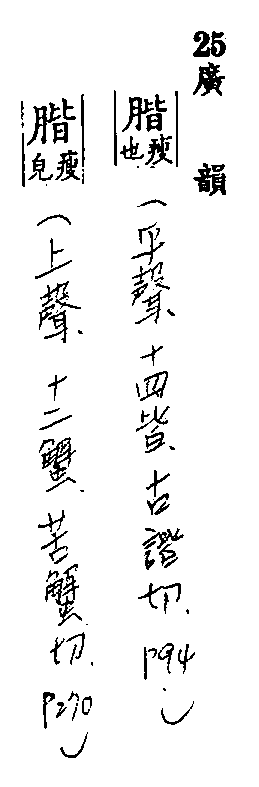 25廣韻
腊瘦也(平聲、十四皆、古諧切、P94)
腊瘦皃(上聲、十二蟹、苦蟹切、P270)